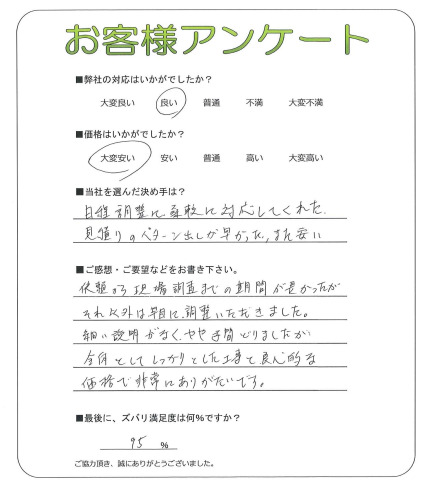 お客様アンケート
■弊社の対応はいかがでしたか？
大変良い 良い 普通 不満 大変不満
■価格はいかがでしたか？
大変安い 安い 普通 高い 大変高い
■当社を選んだ決め手は？
日程調整に柔軟に対応してくれた.
見積りのパターン出しが早かった, また安い
■ご感想・ご要望などをお書き下さい。
依頼から現場調査までの期間が長かったが
それ以外は早目に調整いただきました。
細い説明がなく、やや手間どりましたが
全体としてしっかりとした工事と良心的な
価格で非常にありがたいです。
■最後に、ズバリ満足度は何％ですか？
95 ％
ご協力頂き、誠にありがとうございました。